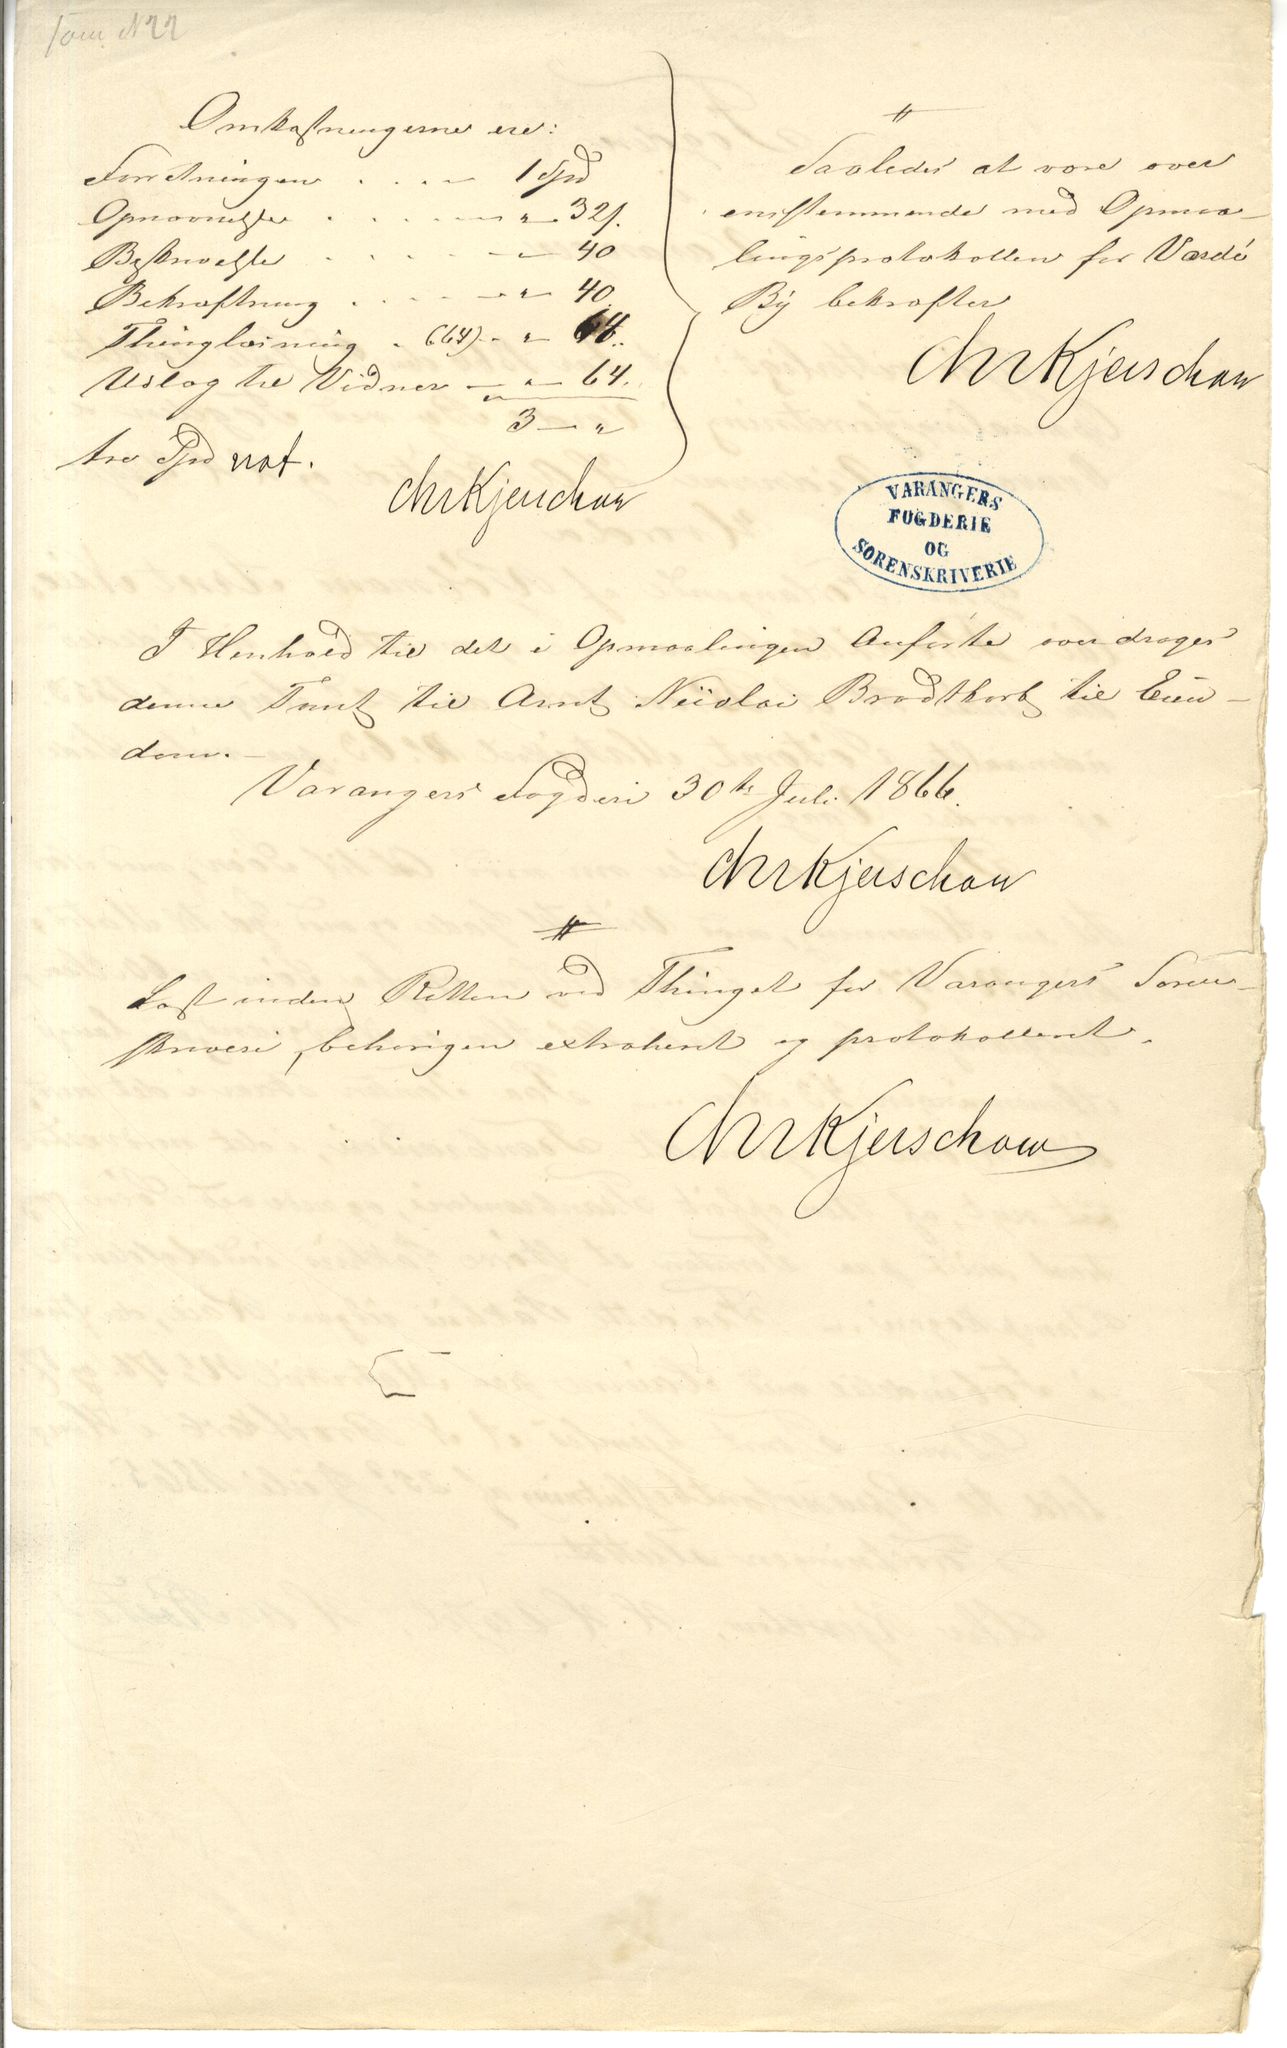 Tom. N 22
Omkostningerne ere:
Forretningen . . . . — 1 Spd
Opnævnelse . . . . . — " — 32 s.
Beskrivelse . . . . . — " — 40
Bekræftning . . . . — " — 40.
Thinglæsning . (64) — " — 64..
Udlæg til Vidner — " — 64.
3 — "
tre Spd not.
Chr Kjerschow
Saaledes at være over
ensstemmende med Opmaa-
lingsprotokollen for Vardø
By bekræfter
Chr Kjerschow
VARANGERS
FOGDERIE
OG
SORENSKRIVERIE
I Henhold til det i Opmaalingen Anførte overdrages
denne Tomt til Arnt Nicolai Brodtkorb til Eien-
dom.—
Varangers Fogderi 30te Juli 1866.
Chr Kjerschow
Læst inden Retten ved Thinget for Varangers Soren-
skriveri, behørigen extraheret og protokolleret.
Chr Kjerschow